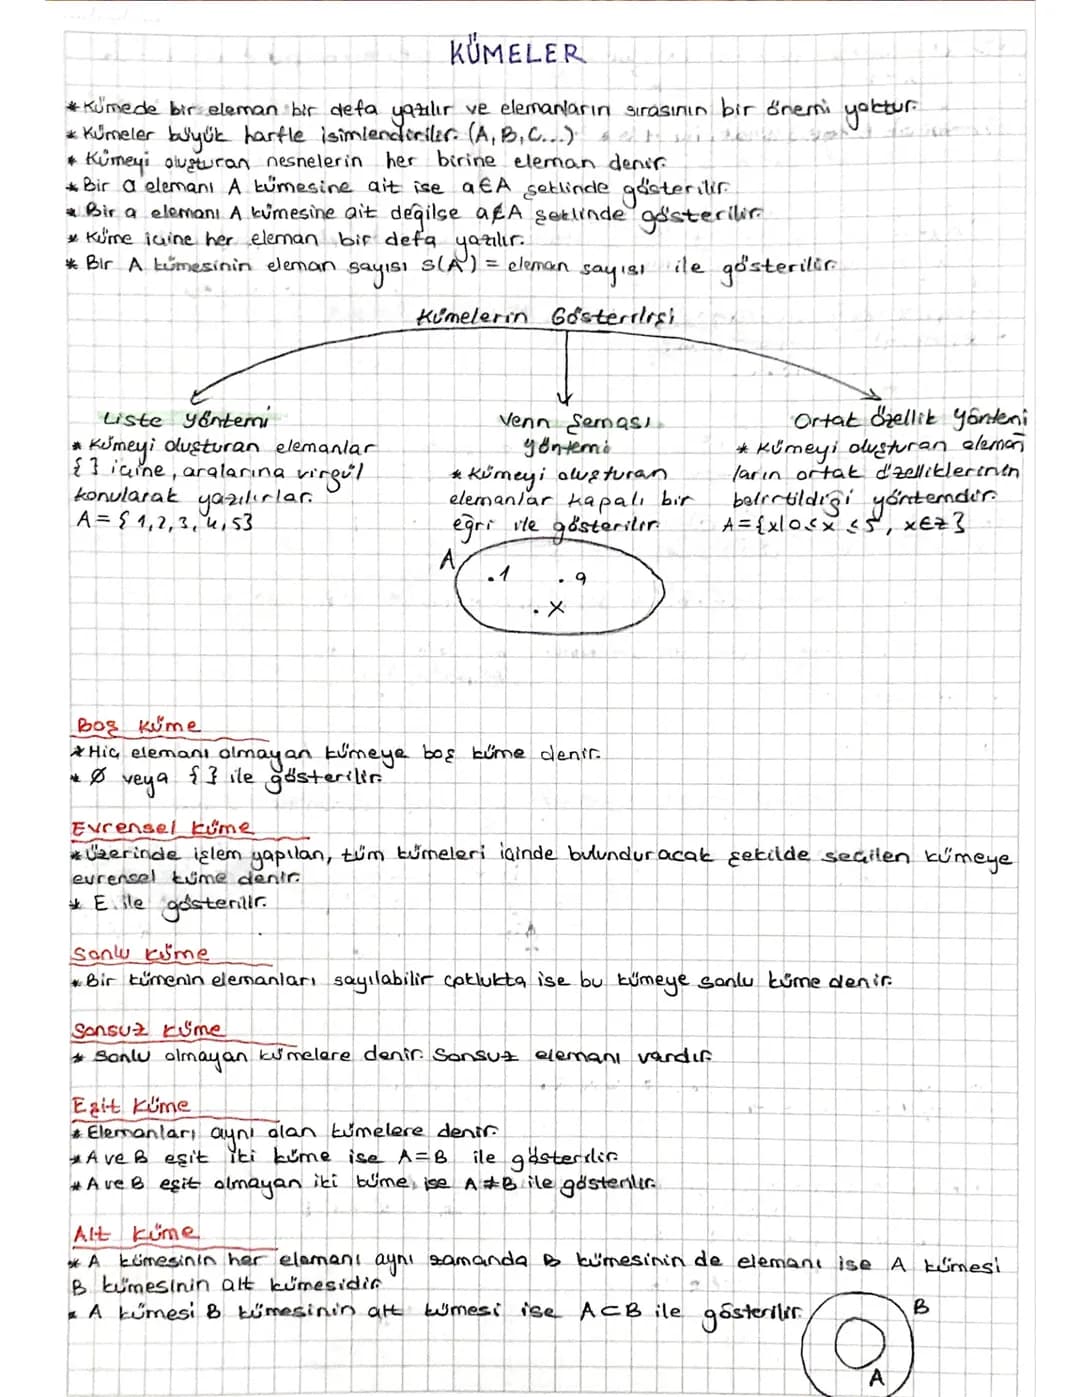 KÜMELER
* Kümede bir eleman bir defa yazılır ve elemanların sırasının bir önemi yoktur.
* Kümeler büyük harfle isimlendirilir. (A, B, C...)
* Kümeyi oluşturan nesnelerin her birine eleman denir.
* Bir a elemanı A kümesine ait ise a∈A şeklinde gösterilir.
* Bir a elemanı A kümesine ait değilse a∉A şeklinde gösterilir.
* Küme içine her eleman bir defa yazılır.
* Bir A kümesinin eleman sayısı s(A) = eleman sayısı ile gösterilir.
Kümelerin Gösterilişi
Liste Yöntemi
* Kümeyi oluşturan elemanlar
{ } içine, aralarına virgül
konularak yazılırlar.
A = {1, 2, 3, 4, 5}
Venn Şeması
Yöntemi
* Kümeyi oluşturan
elemanlar kapalı bir
eğri ile gösterilir.
A
.1 .9
.X
Ortak Özellik Yöntemi
* Kümeyi oluşturan eleman
ların ortak özelliklerinin
belirtildiği yöntemdir.
A={x|0≤x≤5, x∈z}
Boş Küme
* Hiç elemanı olmayan kümeye boş küme denir.
* Ø veya { } ile gösterilir.
Evrensel Küme
* Üzerinde işlem yapılan, tüm kümeleri içinde bulunduracak şekilde seçilen kümeye
evrensel küme denir.
* E ile gösterilir.
Sonlu Küme
* Bir kümenin elemanları sayılabilir çoklukta ise bu kümeye sonlu küme denir.
Sonsuz Küme
* Sonlu olmayan kümelere denir. Sonsuz elemanı vardır.
Eşit Küme
* Elemanları aynı olan kümelere denir.
* A ve B eşit iki küme ise A=B ile gösterilir.
* A ve B eşit olmayan iki küme ise A≠B ile gösterilir.
Alt Küme
* A kümesinin her elemanı aynı zamanda B kümesinin de elemanı ise A kümesi
B kümesinin alt kümesidir.
* A kümesi B kümesinin alt kümesi ise A⊂B ile gösterilir.
B
A